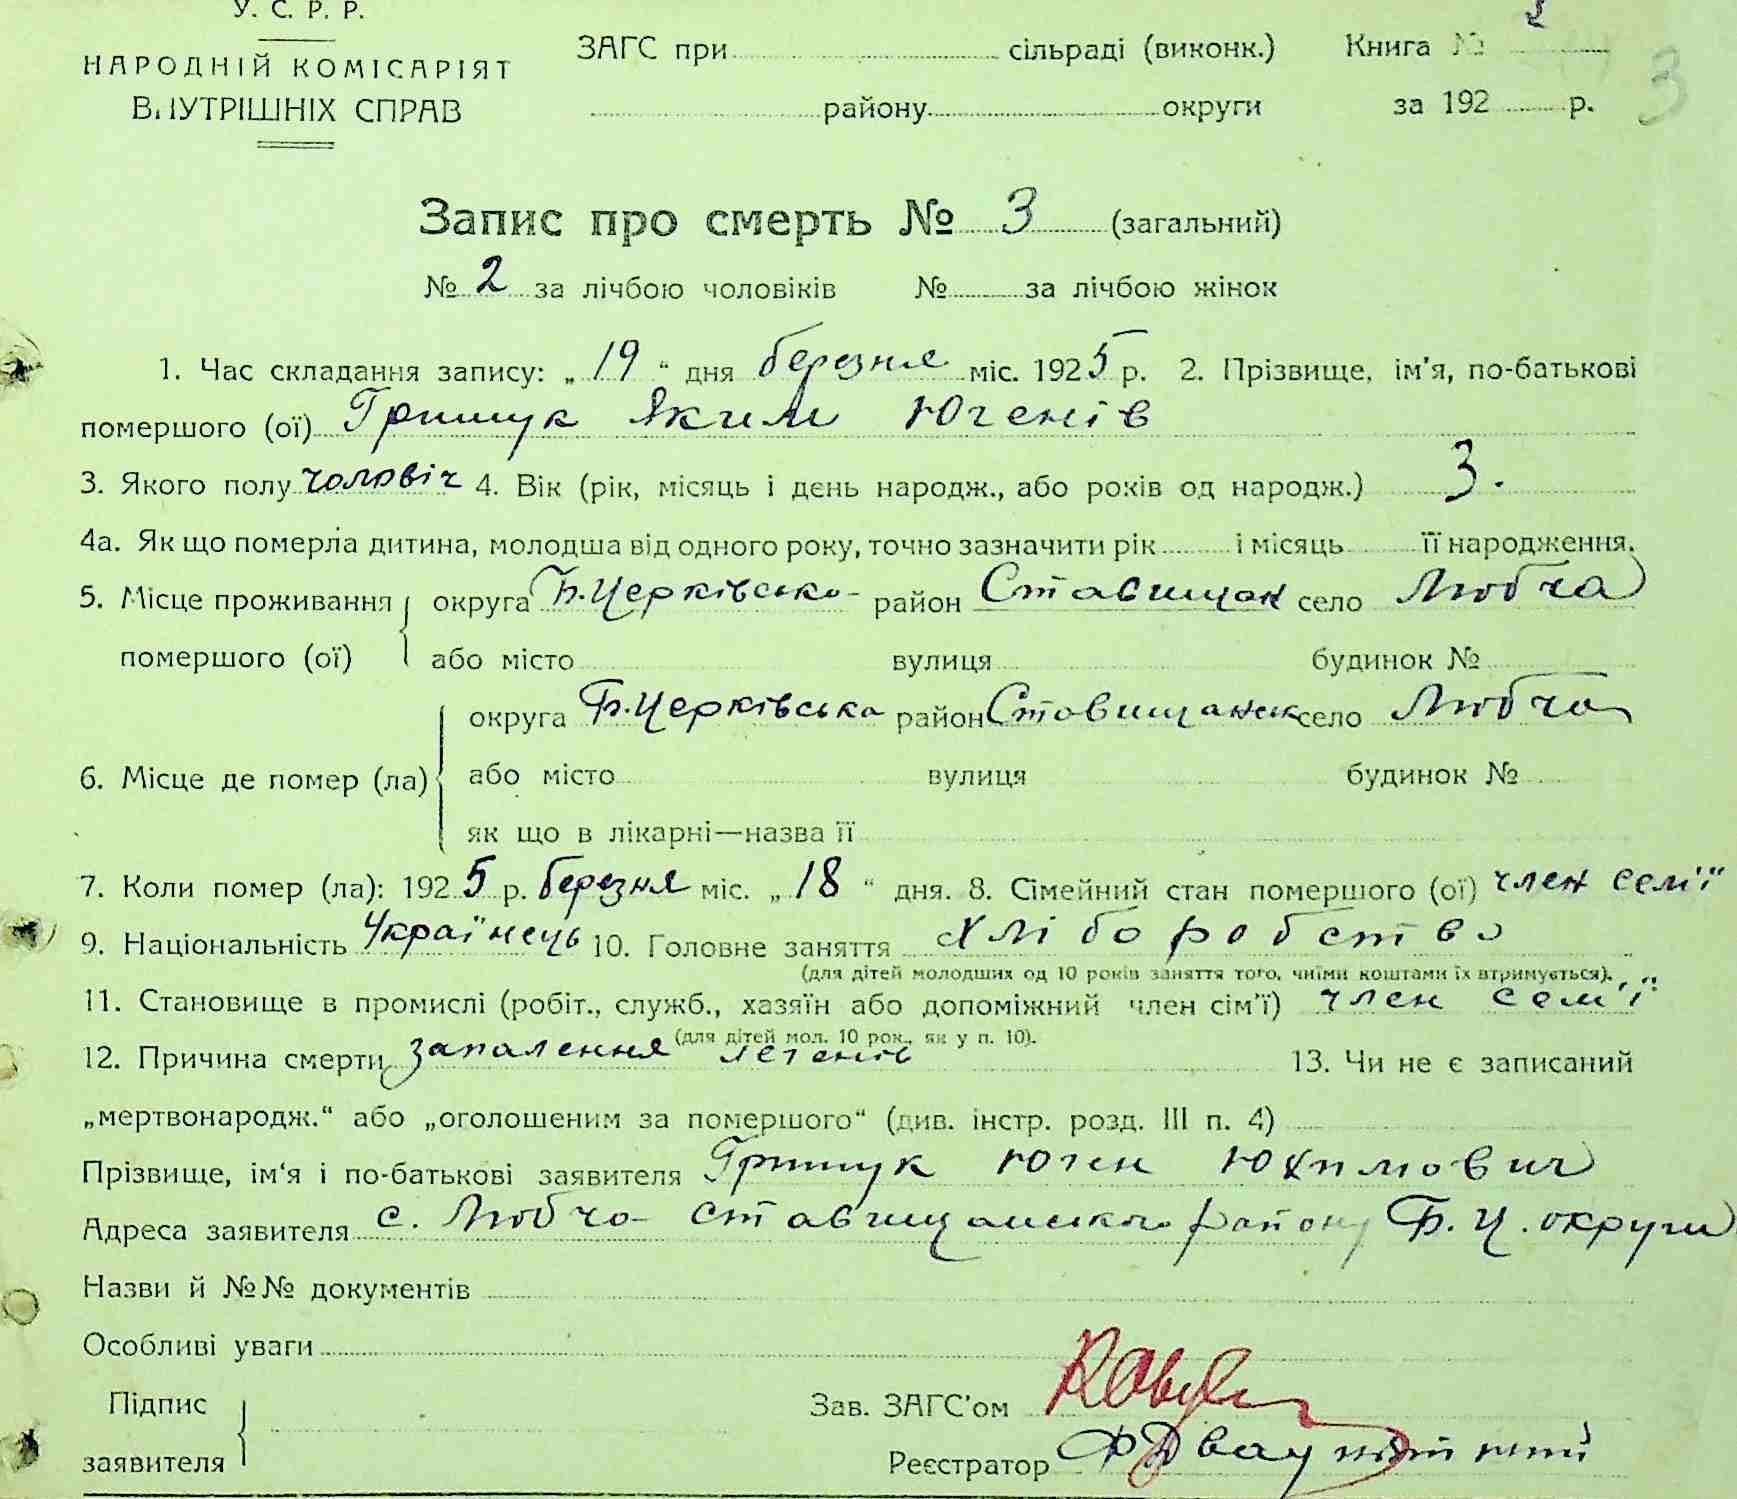 У. С. Р. Р.
НАРОДНІЙ КОМІСАРІЯТ
ВНУТРІШНІХ СПРАВ
ЗАГС при сільраді (виконк.) Книга №
району округи за 192 р.
3
Запис про смерть № 3 (загальний)
№ 2 за лічбою чоловіків № за лічбою жінок
1. Час складання запису: „19“ дня березня міс. 1925 р. 2. Прізвище, ім'я, по-батькові
помершого (ої) Грищук Яким Югенів
3. Якого полу чоловіч 4. Вік (рік, місяць і день народж., або років од народж.) 3.
4а. Як що померла дитина, молодша від одного року, точно зазначити рік і місяць її народження.
5. Місце проживання помершого (ої) округа Б.Церківсько- район Ставищан село Любча
або місто вулиця будинок №
6. Місце де помер (ла) округа Б.Церківська район Ставищанськ село Любча
або місто вулиця будинок №
як що в лікарні—назва її
7. Коли помер (ла): 1925 р. березня міс. „18“ дня. 8. Сімейний стан помершого (ої) член семʼї
9. Національність Українець 10. Головне заняття хліборобство
(для дітей молодших од 10 років заняття того, чиїми коштами їх втримується).
11. Становище в промислі (робіт., служб., хазяїн або допоміжний член сім'ї) член сем'ї
(для дітей мол. 10 рок., як у п. 10).
12. Причина смерти запалення легенів 13. Чи не є записаний
„мертвонародж.“ або „оголошеним за помершого“ (див. інстр. розд. III п. 4)
Прізвище, ім'я і по-батькові заявителя Грищук Юген Юхимович
Адреса заявителя с. Любча Ставищанського району Б. Ц. округи
Назви й №№ документів
Особливі уваги
Підпис заявителя
Зав. ЗАГС'ом
Реєстратор